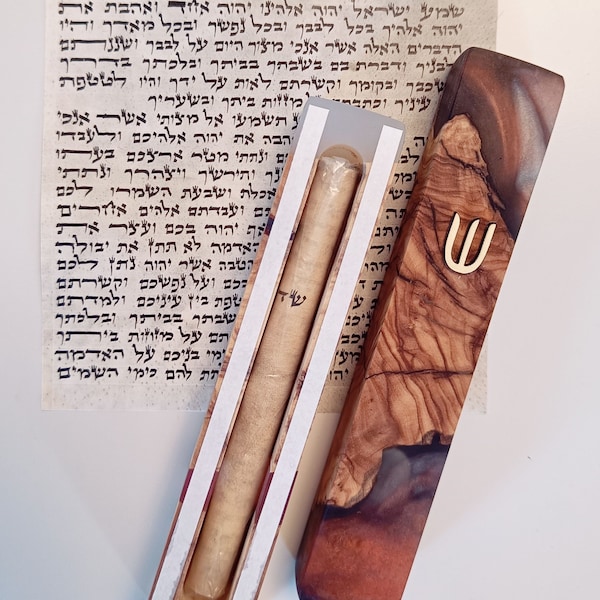 שמע ישראל יהוה אלהינו יהוה אחד ואהבת את
יהוה אלהיך בכל לבבך ובכל נפשך ובכל מאדך והיו
הדברים האלה אשר אנכי מצוך היום על לבבך ושננתם
לבניך ודברת בם בשבתך בביתך ובלכתך בדרך
שכבך ובקומך וקשרתם לאות על ידך והיו לטטפת
עיניך וכתבתם מזזות ביתך ובשעריך
תשמעו אל מצותי אשר אנכי
את יהוה אלהיכם ולעבדו
ונתתי מטר ארצכם בעתו
ותירשך ויצהרך ונתתי
ואכלת ושבעת השמרו לכם
ועבדתם אלהים אחרים
אף יהוה בכם ועצר את
האדמה לא תתן את יבולה
הטבה אשר יהוה נתן לכם
ועל נפשכם וקשרתם
בין עיניכם ולמדתם
בשבתך בביתך ובלכתך
על מזוזות ביתך
בניכם על האדמה
להם כימי השמים
שד
ש